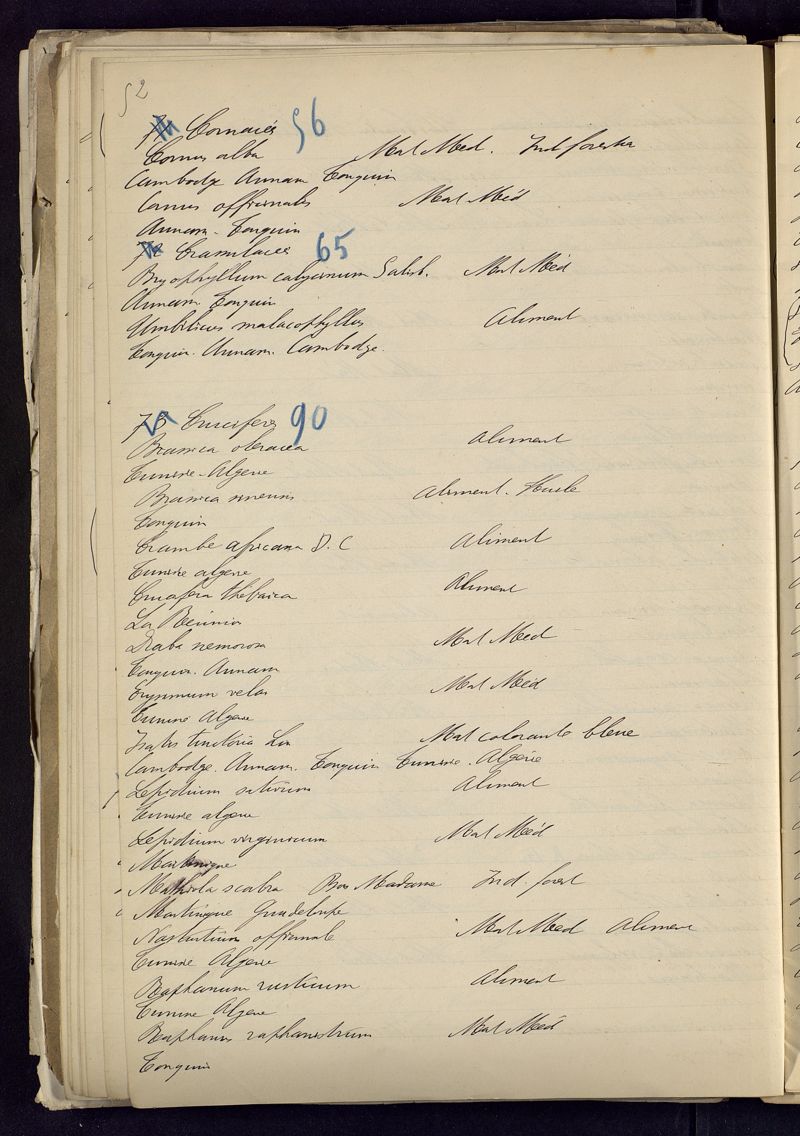 52
71 Cornaiés 56
Cornus alba Mat Med. Ind forester
Cambodge Annam Tonquin
Cornus officinales Mat Méd
Annam. Tonquin
72 Crassulacées 65
Bryophyllum calycinum Salisb. Mat Méd
Annam Tonquin
Umbilicus malacophyllus Aliment
Tonquin. Annam. Cambodge.
73 Crucifères 90
Brassica oleracea Aliment
Tunisie-Algerie
Brassica sinensis Aliment. Huile
Tonquin
Crambe africana D. C Aliment
Tunisie algerie
Crucifera thebaica Aliment
La Réunion
Draba nemorosa Mat Méd
Tonquin. Annam
Erysimum velar Mat Méd
Tunisie Algerie
Isatis tinctoria Lin Mat colorante bleue
Cambodge. Annam. Tonquin Tunisie. Algérie
Lepidium sativum Aliment
Tunisie algerie
Lepidium virginicum Mat Méd
Martinique
Mathiola scabra Bois Madame Ind. forest
Martinique Guadeloupe
Nasturtium officinale Mat Med Aliment
Tunisie Algerie
Raphanum rusticum Aliment
Tunisie Algerie
Raphanus raphanistrum Mat Méd
Tonquin